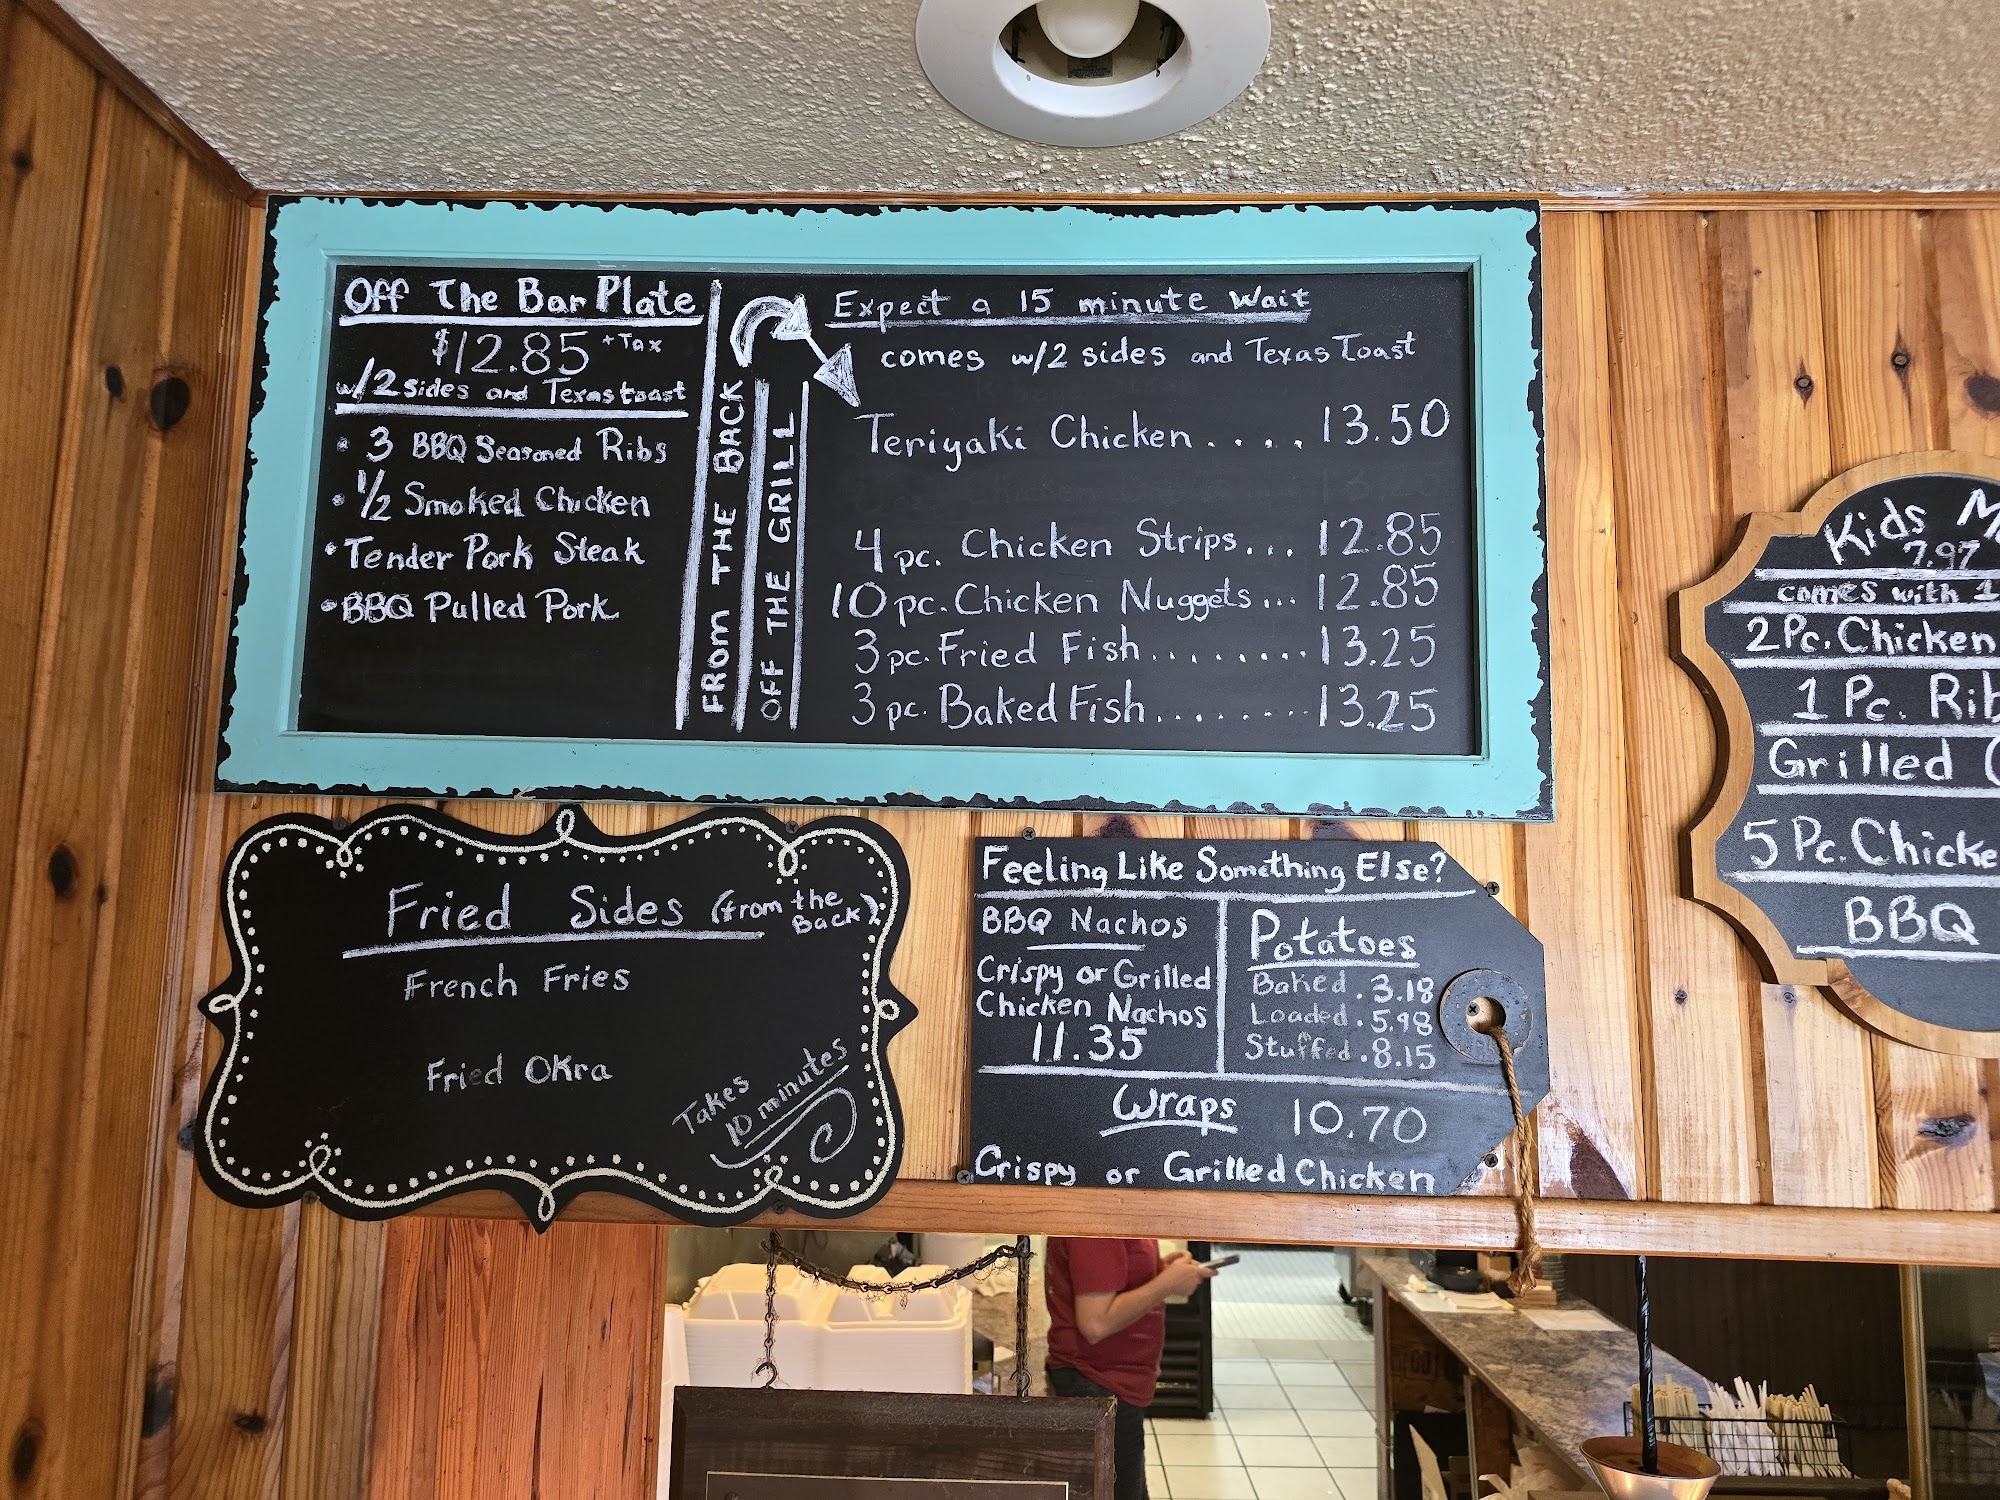 Off The Bar Plate
$12.85 +Tax
w/2 sides and Texas toast
• 3 BBQ Seasoned Ribs
• 1/2 Smoked Chicken
• Tender Pork Steak
• BBQ Pulled Pork
FROM THE BACK
OFF THE GRILL
Expect a 15 minute Wait
comes w/2 sides and Texas Toast
Teriyaki Chicken.... 13.50
4 pc. Chicken Strips... 12.85
10 pc. Chicken Nuggets... 12.85
3 pc. Fried Fish........ 13.25
3 pc. Baked Fish........ 13.25
Fried Sides (from the Back)
French Fries
Fried Okra
Takes
10 minutes
Feeling Like Something Else?
BBQ Nachos
Crispy or Grilled
Chicken Nachos
11.35
Potatoes
Baked . 3.18
Loaded . 5.98
Stuffed . 8.15
Wraps 10.70
Crispy or Grilled Chicken
Kids
7.97
comes with 1
2 Pc. Chicken
1 Pc. Rib
Grilled
5 Pc. Chicke
BBQ